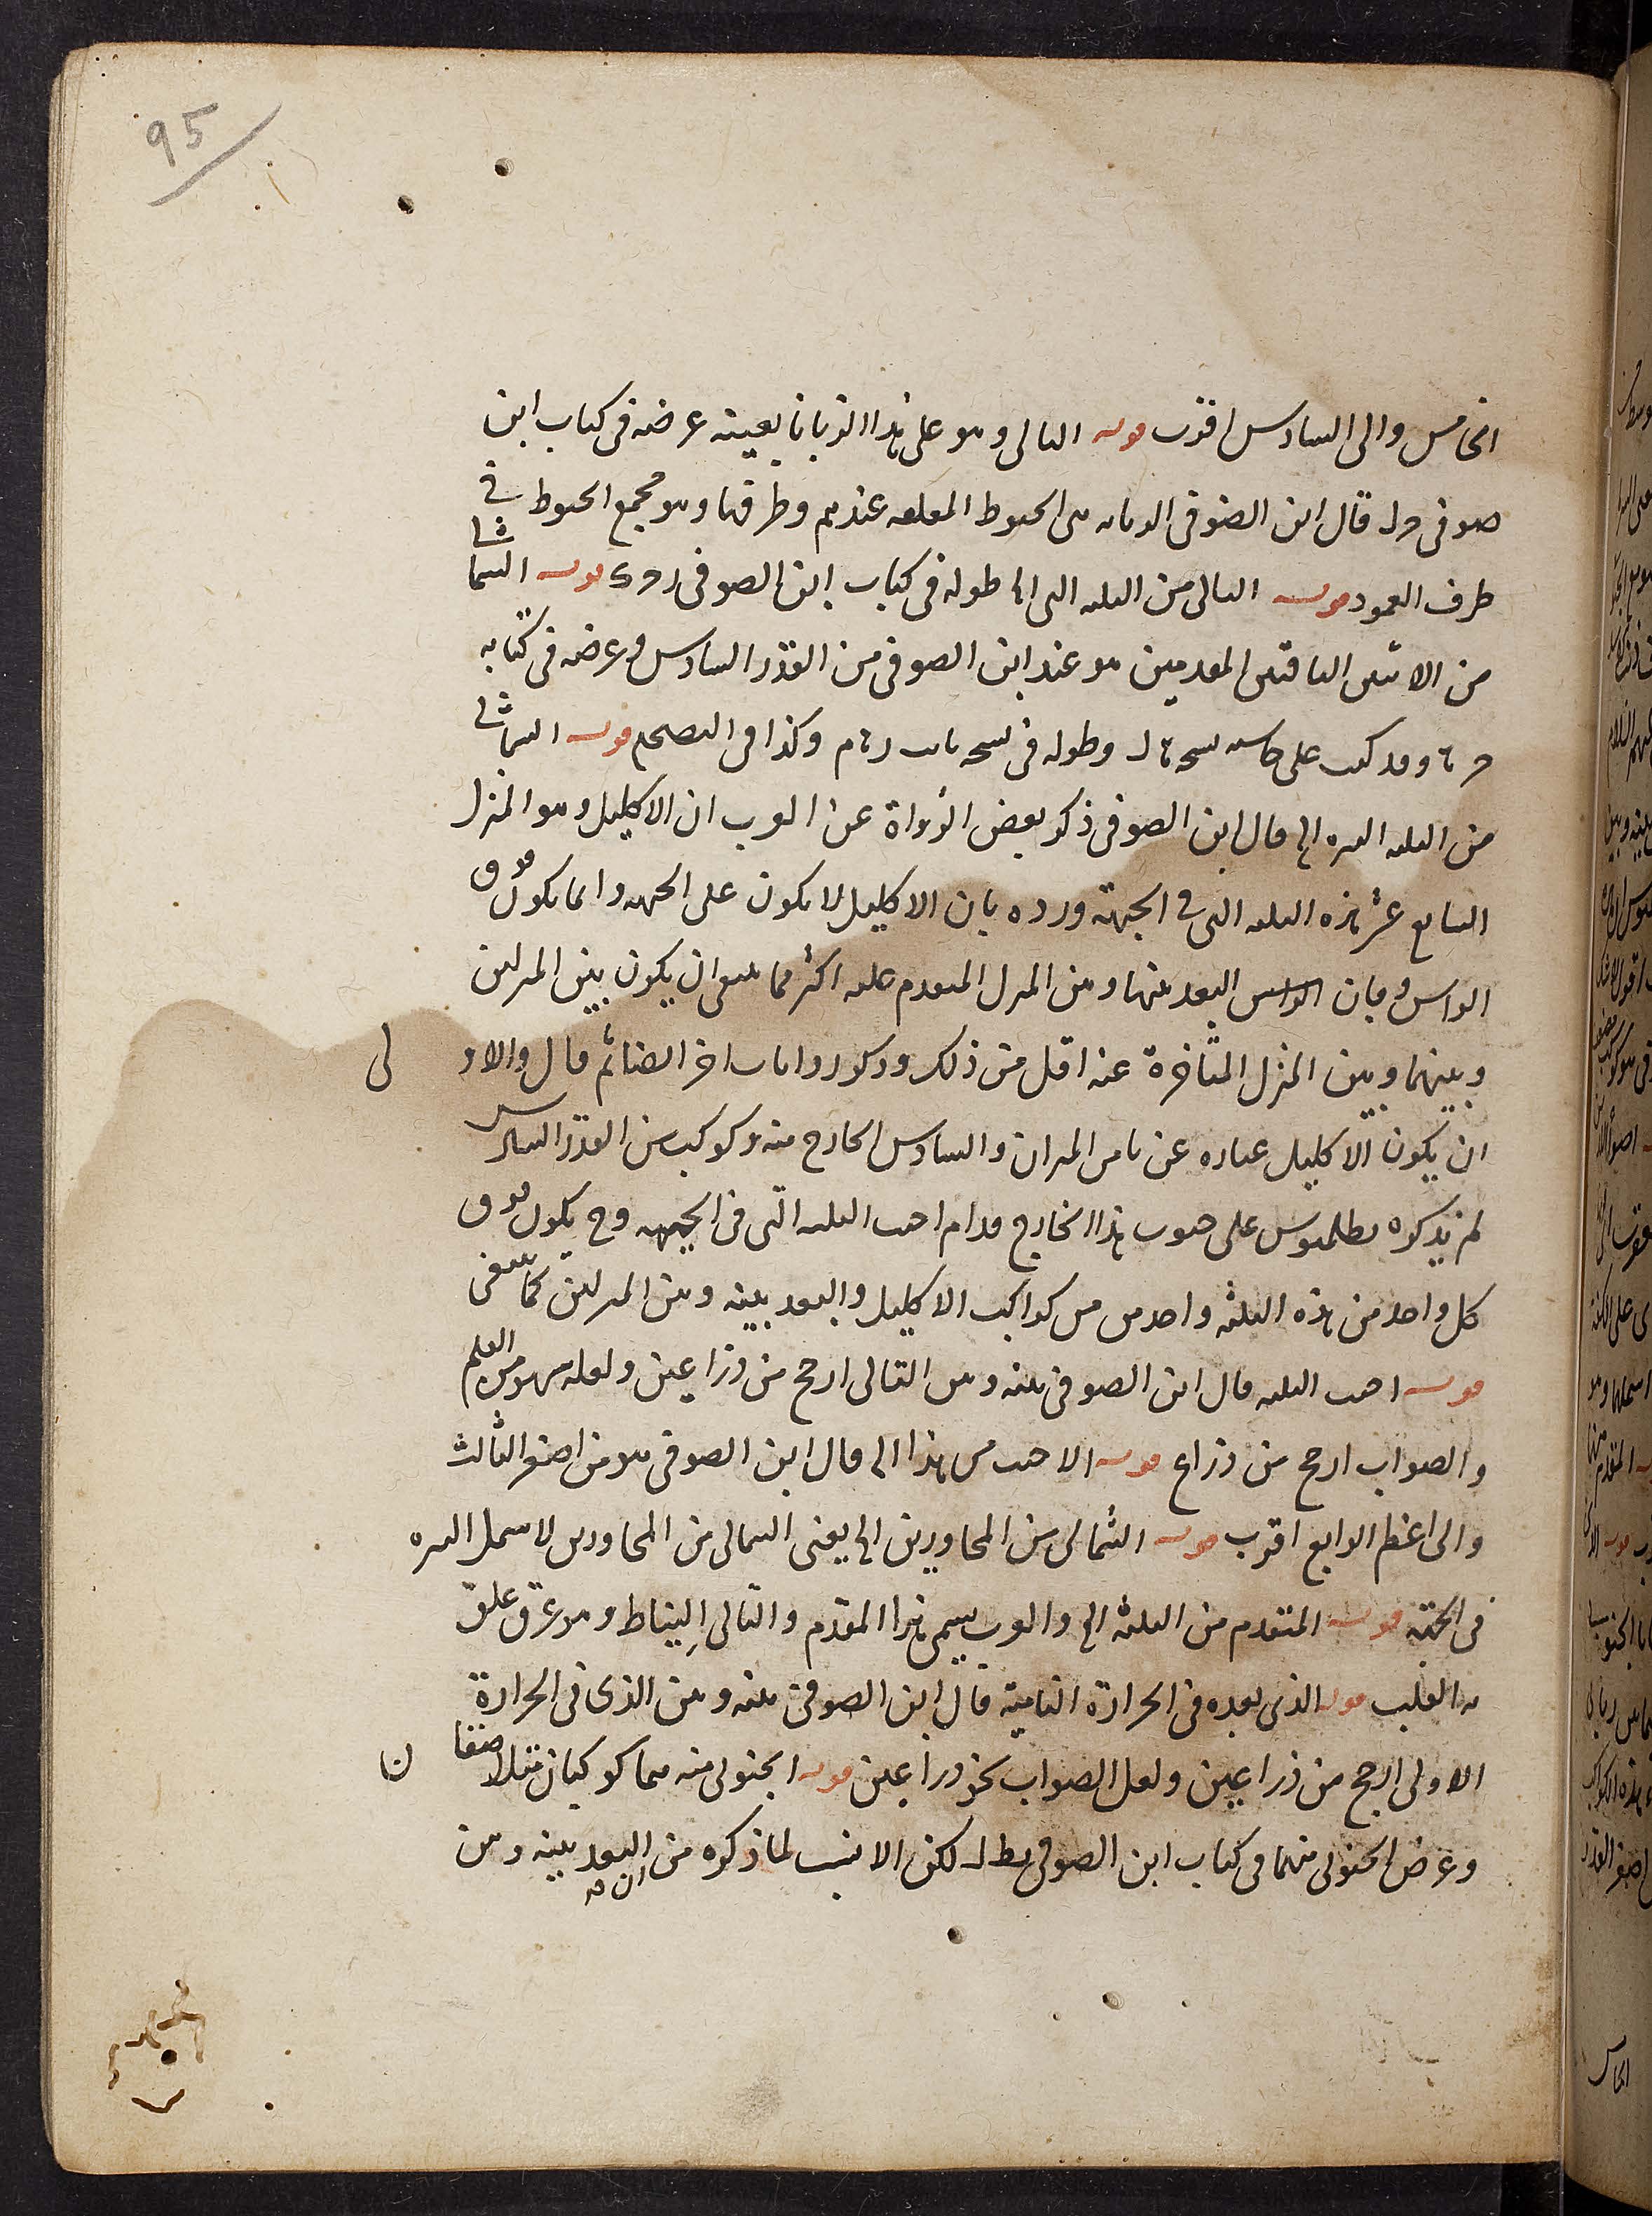 95
الخامس والى السادس اقرب قوله التالى وهو على هذا الزبانا بعينه عرضه فى كتاب ابن
صوفى ح ل قال ابن الصوفى الزبانان هى الخيوط المعلقه عندهم وطرفها وهو مجمع الخيوط فى
طرف العمود قوله التالى من الثلثه التى الخ طوله فى كتاب ابن الصوفى قوله الشمالى
من الاثنين الباقيين المقدمين هو عند ابن الصوفى من القدر السادس وعرضه فى كتابه
وقد كتب على حاشيه نسخه وطوله فى نسخه وكذا فى التصحيح قوله الشمالى
من الثلثه النيره الخ قال ابن الصوفى ذكر بعض الرواة عن العرب ان الاكليل وهو المنزل
السابع عشر هذه الثلثه التى فى الجبهة ورده بان الاكليل لا يكون على الجبهه وانما يكون فوق
الراس وبان البعد بينها وبين المنزل المتقدم عليه اكثر مما ينبغى ان يكون بين المنزلين
وبينها وبين المنزل المتاخرة عنه اقل من ذلك وذكر روايات اخر ايضا ثم قال والاولى
ان يكون الاكليل عباره عن ثامن الميزان والسادس الخارج منه وكوكب من القدر السادس
لم يذكره بطلميوس على جنوب هذا الخارج قدام احد الثلثه التى فى الجبهه وح يكون فوق
كل واحد من هذه الثلثه واحد من كواكب الاكليل والبعد بينه وبين المنزلين كما ينبغى
قوله اجنب الثلثه قال ابن الصوفى بينه وبين التالى ارجح من ذراعين ولعله سهو من القلم
والصواب ارجح من ذراع قوله الاجنب من هذا الخ قال ابن الصوفى هو من اصغر الثالث
والى اعظم الرابع اقرب قوله الشمالى من المجاورين الخ يعنى الشمالى من المجاورين لاشمل النيره
فى الجبهة قوله المتقدم من الثلثه الخ والعرب يسمى هذا المقدم والتالى النياط وهو عرق علق
به القلب قوله الذى بعده فى الحرازة الثانية قال ابن الصوفى بينه وبين الذى فى الحرازة
الاولى ارجح من ذراعين ولعل الصواب نحو ذراعين قوله الجنوبى منهما كوكبان متلاصقان
وعرض الجنوبى منهما فى كتاب ابن الصوفى يط ل لكن الانسب لما ذكره من ان البعد بينه وبين